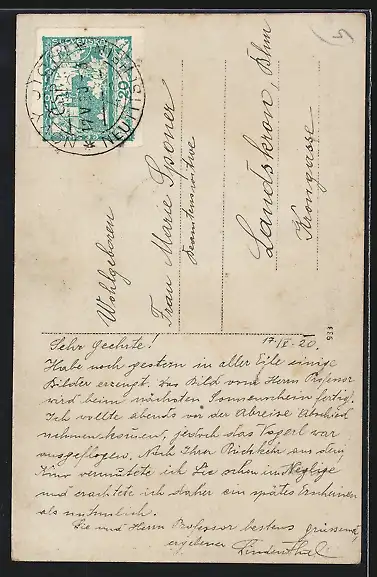 Wohlgeboren
Frau Marie Sponer
Beamtenswitwe
Landskron, Bhm
Krongasse
933
17./V. 20.
Sehr Geehrte!
Habe noch gestern in aller Eile einige
Bilder erzeugt. Das Bild vom Herrn Professor
wird beim nächsten Sonnenschein fertig.
Ich wollte abends vor der Abreise Abschied
nehmen kommen, jedoch das Vogerl war
ausgeflogen. Nach Ihrer Rückkehr aus dem
Kino vermutete ich Sie schon im Neglige
und erachtete ich daher ein spätes Erscheinen
als
Sie und Herrn Professor bestens grüssend,
ergebener Lindenthal